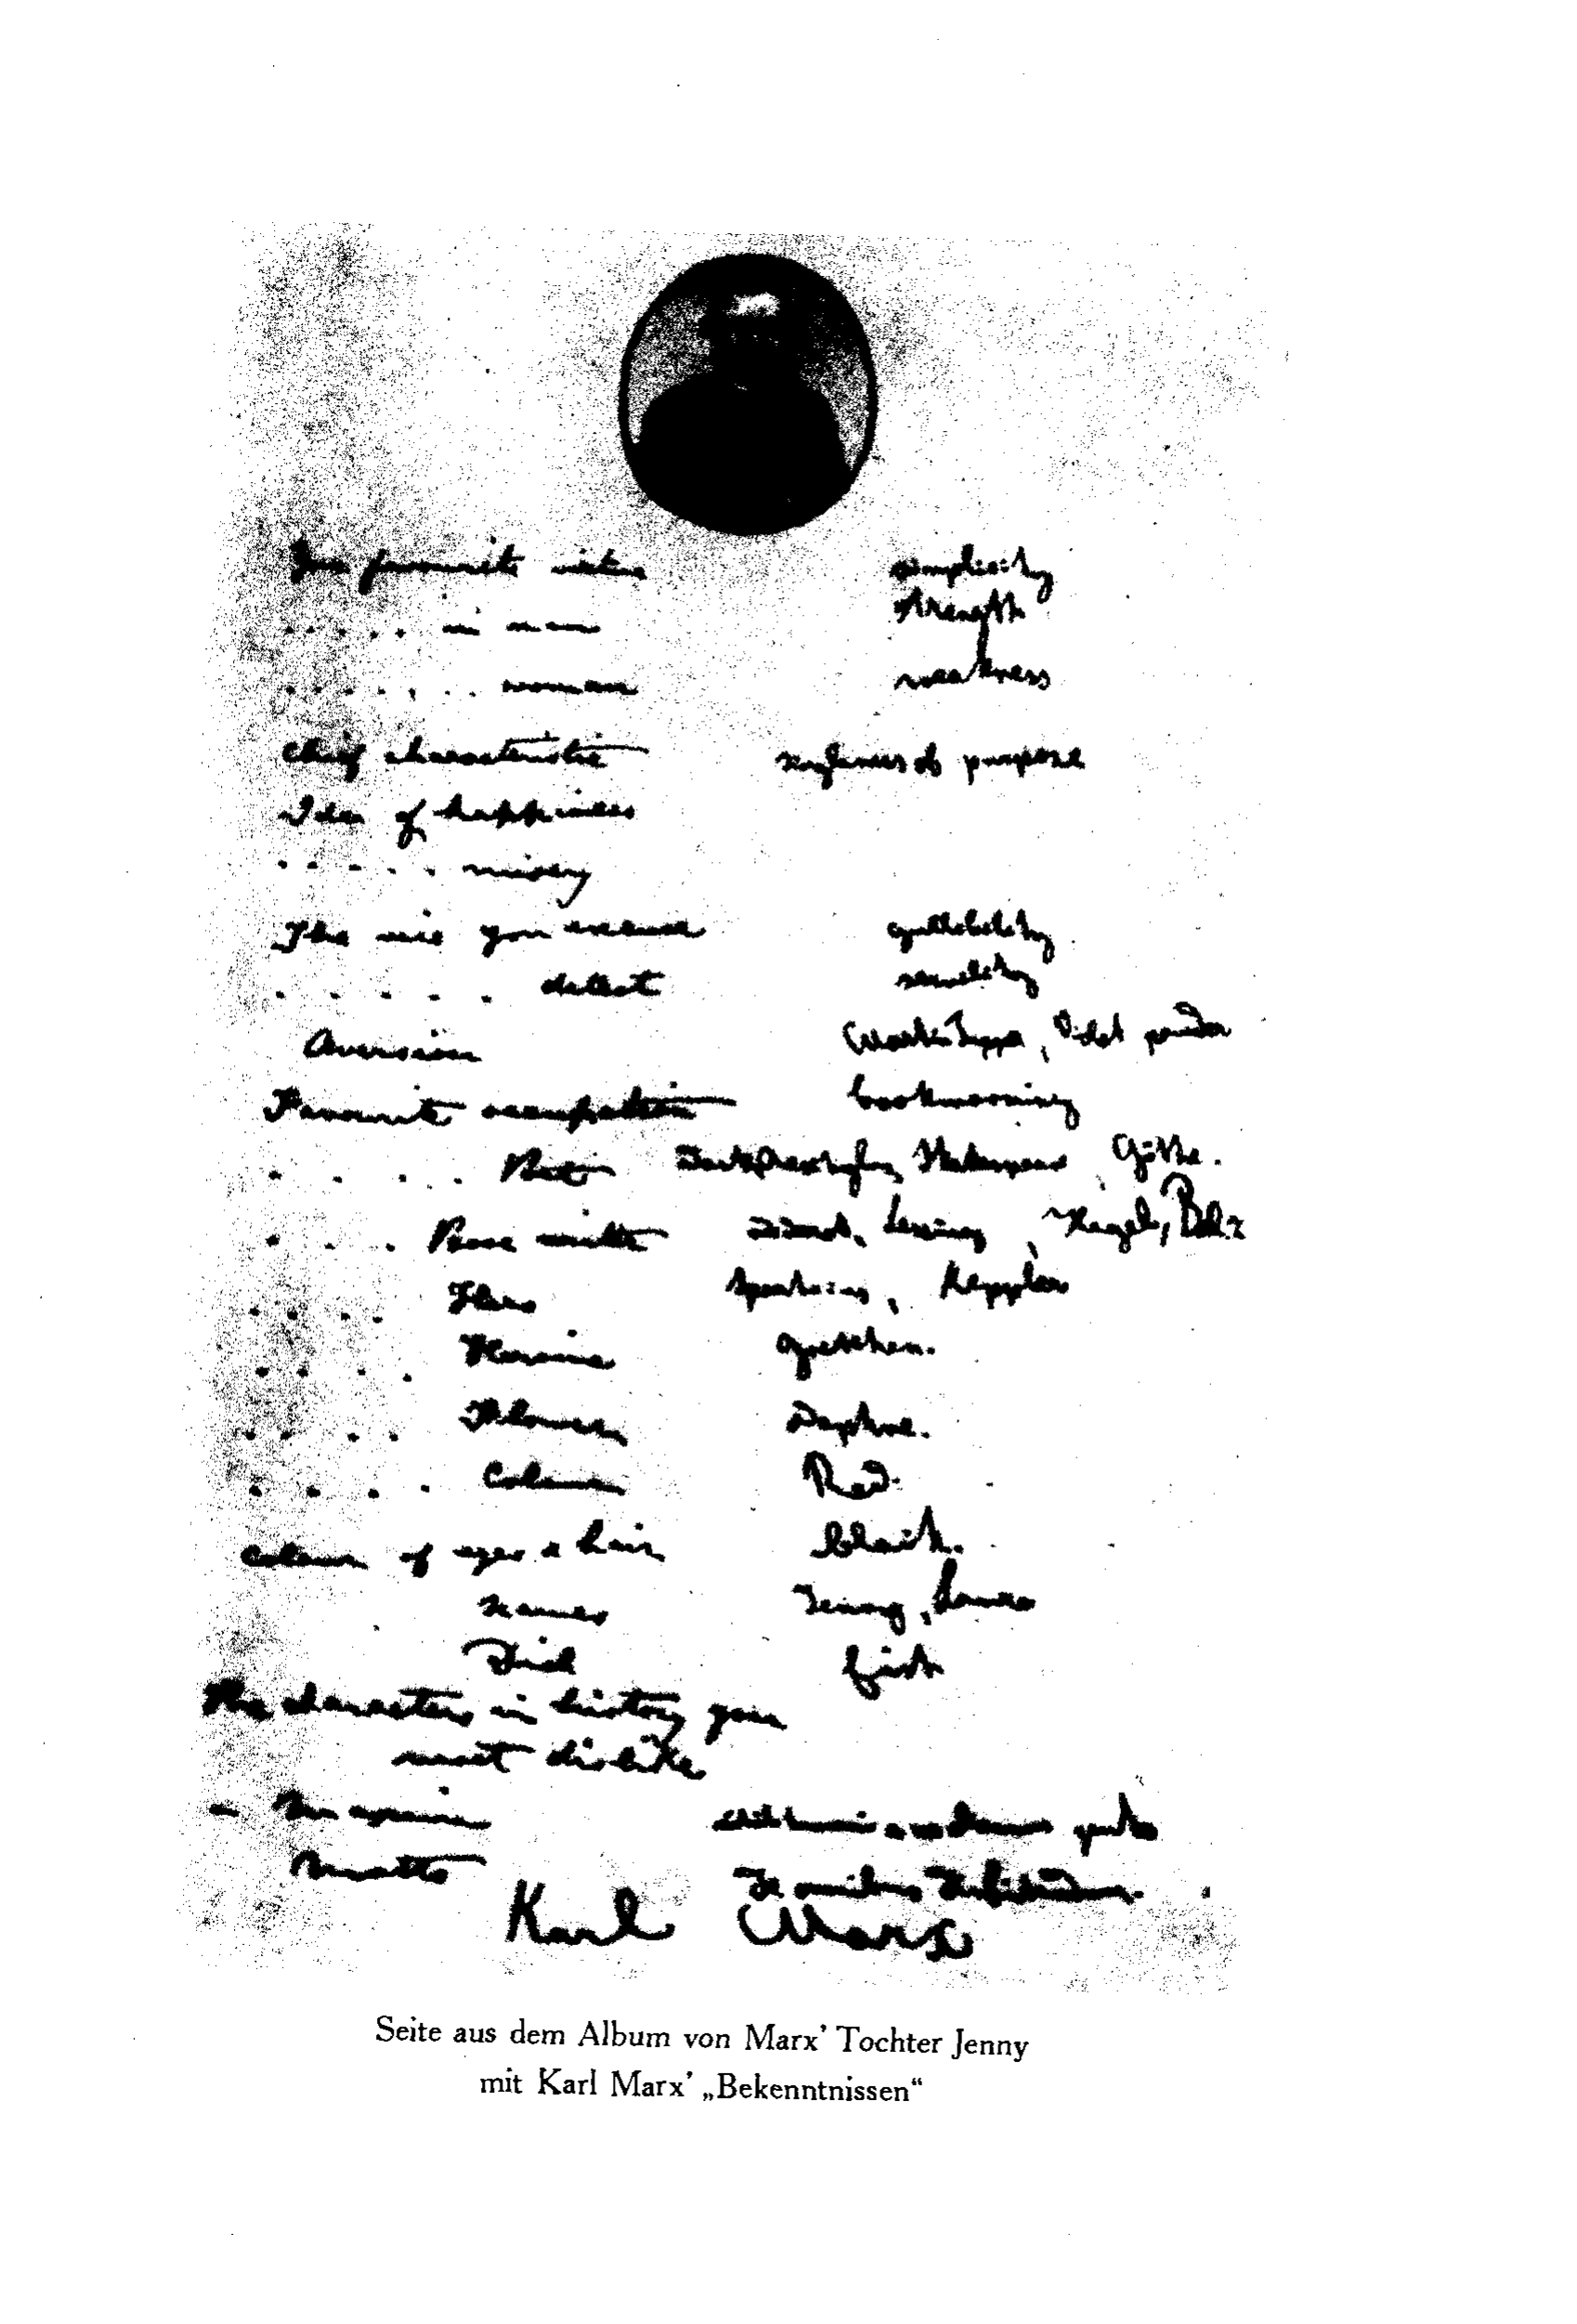 Your favourite virtue simplicity
..... in man strength
....... woman weakness
Chief characteristic singleness of purpose
Idea of happiness
..... misery
The vice you excuse gullibility
..... detest servility
Aversion Martin Tupper, violet powder
Favourite occupation bookworming
..... Poet Shakespeare Göthe.
... Prose writer Diderot, Lessing, Hegel, Balz
.... Hero Spartacus, Keppler
.... Heroine Gretchen.
.... Flower Daphne.
.... Colour Red.
Colour of eyes & hair black.
Names Jenny, Laura
Dish fish
The characters in history you
most dislike
— Maxim
Motto De omnibus dubitandum.
Karl Marx
Seite aus dem Album von Marx’ Tochter Jenny
mit Karl Marx’ „Bekenntnissen“